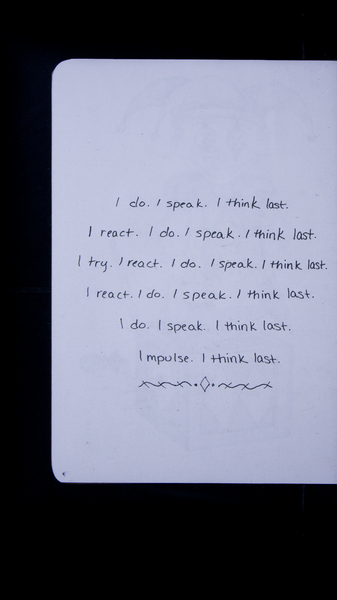 I do. I speak. I think last.
I react. I do. I speak. I think last.
I try. I react. I do. I speak. I think last.
I react. I do. I speak. I think last.
I do. I speak. I think last.
Impulse. I think last.